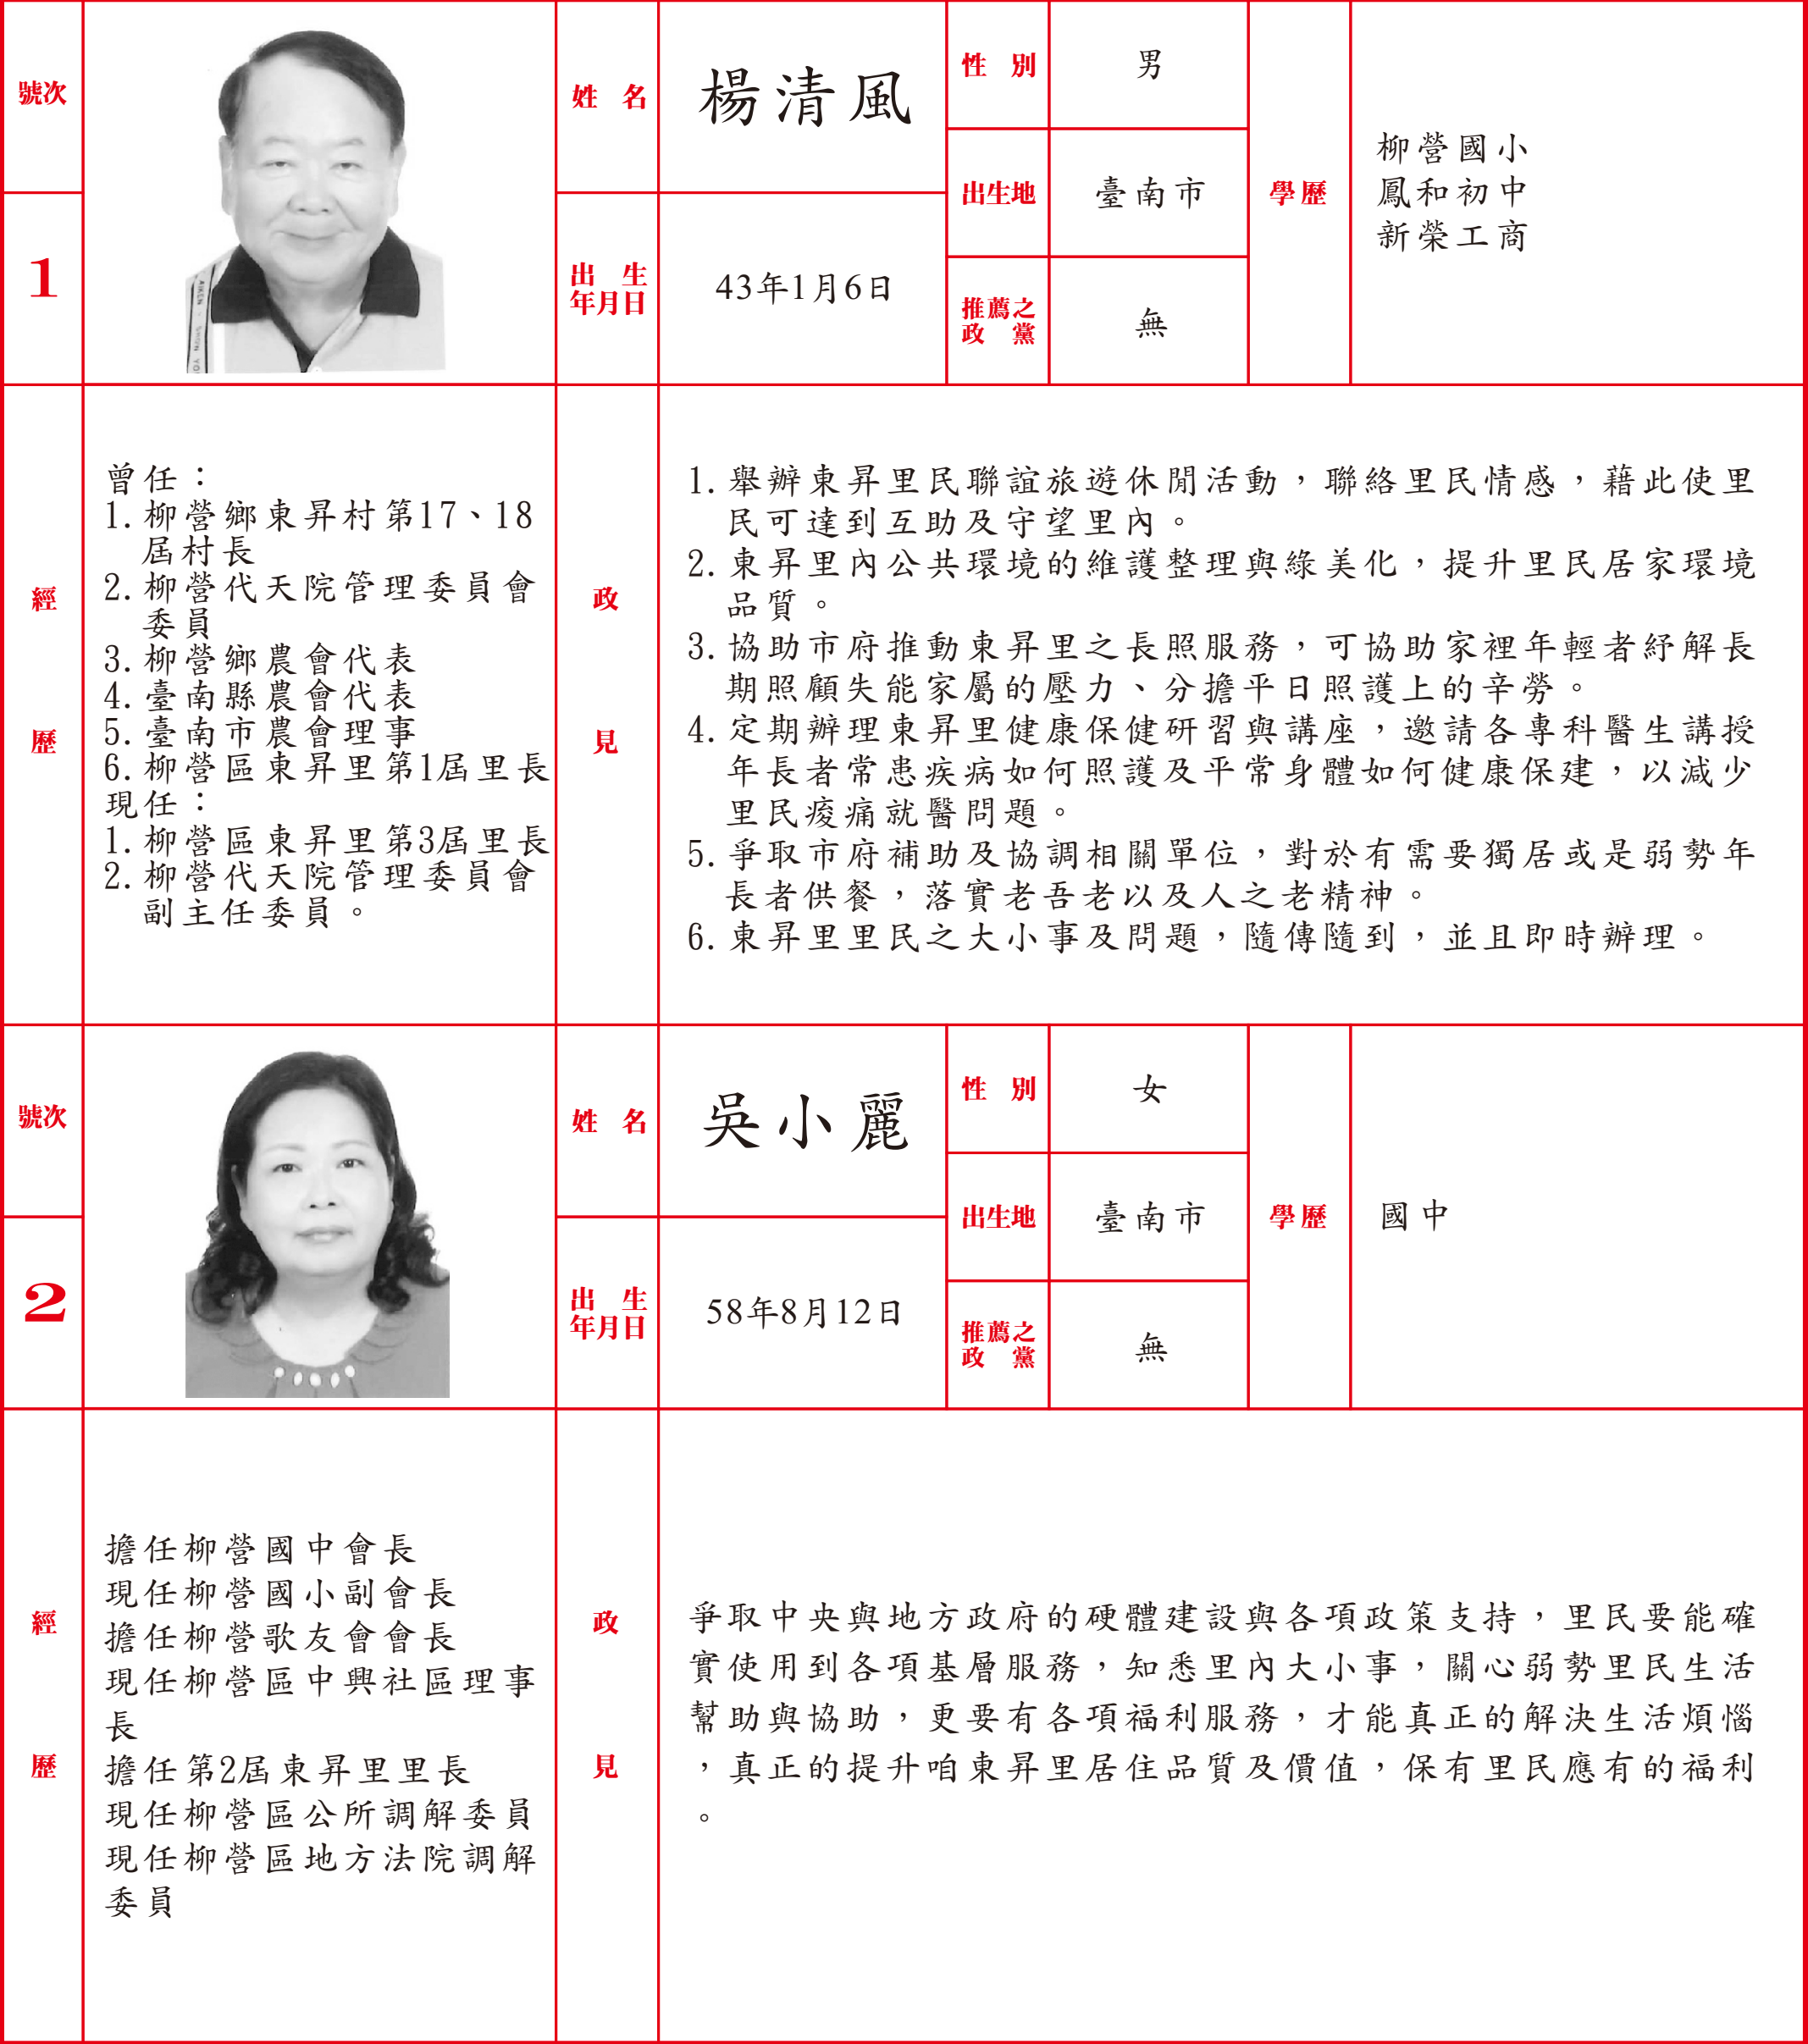 號次
1
姓 名
楊清風
出 生
年月日
43年1月6日
性 別
男
出生地
臺南市
推薦之
政 黨
無
學歷
柳營國小
鳳和初中
新榮工商
經
歷
曾任：
1.柳營鄉東昇村第17、18
屆村長
2.柳營代天院管理委員會
委員
3.柳營鄉農會代表
4.臺南縣農會代表
5.臺南市農會理事
6.柳營區東昇里第1屆里長
現任：
1.柳營區東昇里第3屆里長
2.柳營代天院管理委員會
副主任委員。
政
見
1.舉辦東昇里民聯誼旅遊休閒活動，聯絡里民情感，藉此使里
民可達到互助及守望里內。
2.東昇里內公共環境的維護整理與綠美化，提升里民居家環境
品質。
3.協助市府推動東昇里之長照服務，可協助家裡年輕者紓解長
期照顧失能家屬的壓力、分擔平日照護上的辛勞。
4.定期辦理東昇里健康保健研習與講座，邀請各專科醫生講授
年長者常患疾病如何照護及平常身體如何健康保建，以減少
里民痠痛就醫問題。
5.爭取市府補助及協調相關單位，對於有需要獨居或是弱勢年
長者供餐，落實老吾老以及人之老精神。
6.東昇里里民之大小事及問題，隨傳隨到，並且即時辦理。
號次
2
姓 名
吳小麗
出 生
年月日
58年8月12日
性 別
女
出生地
臺南市
推薦之
政 黨
無
學歷
國中
經
歷
擔任柳營國中會長
現任柳營國小副會長
擔任柳營歌友會會長
現任柳營區中興社區理事
長
擔任第2屆東昇里里長
現任柳營區公所調解委員
現任柳營區地方法院調解
委員
政
見
爭取中央與地方政府的硬體建設與各項政策支持，里民要能確
實使用到各項基層服務，知悉里內大小事，關心弱勢里民生活
幫助與協助，更要有各項福利服務，才能真正的解決生活煩惱
，真正的提升咱東昇里居住品質及價值，保有里民應有的福利
。